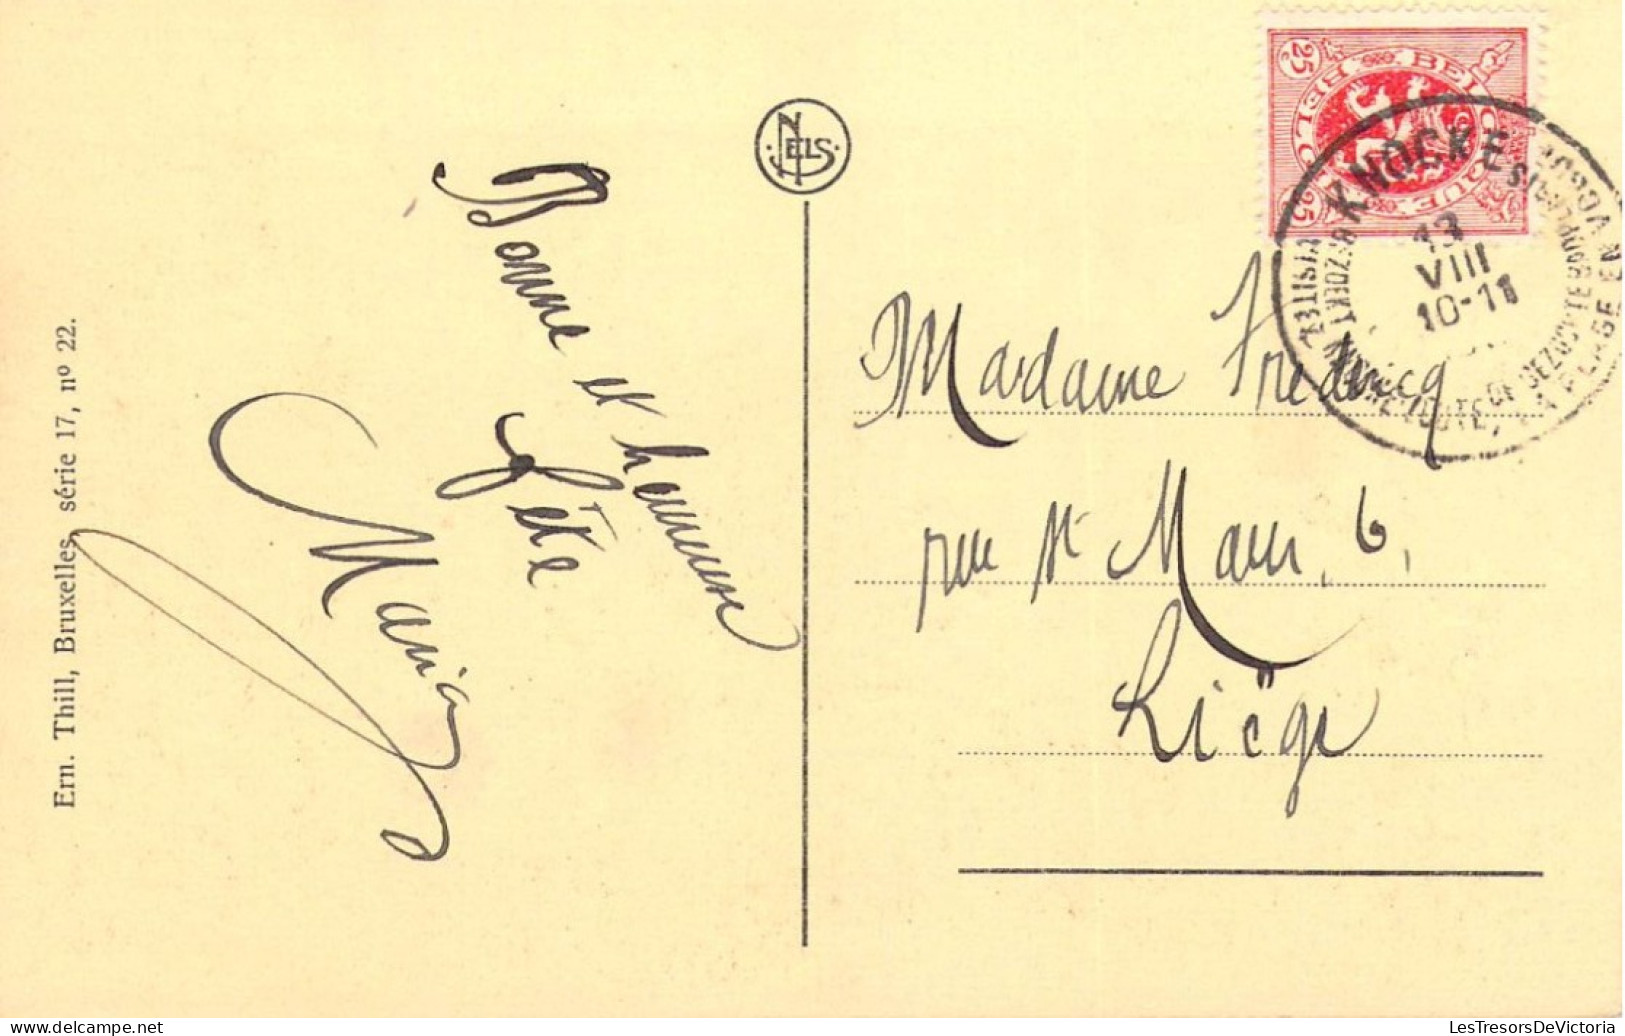 Bonne et heureuse
fête
Maria
Ern. Thill, Bruxelles, série 17, nº 22.
NELS
25 c
BELGIQUE
BELGIË
25
KNOCKE
13
VIII
10-11
VISITEZ
LA PLAGE EN VOGUE
BEZOEKT
Madame Fredericq
rue St Maur, 6,
Liège
LesTresorsDeVictoria.com
LesTresorsDeVictoria